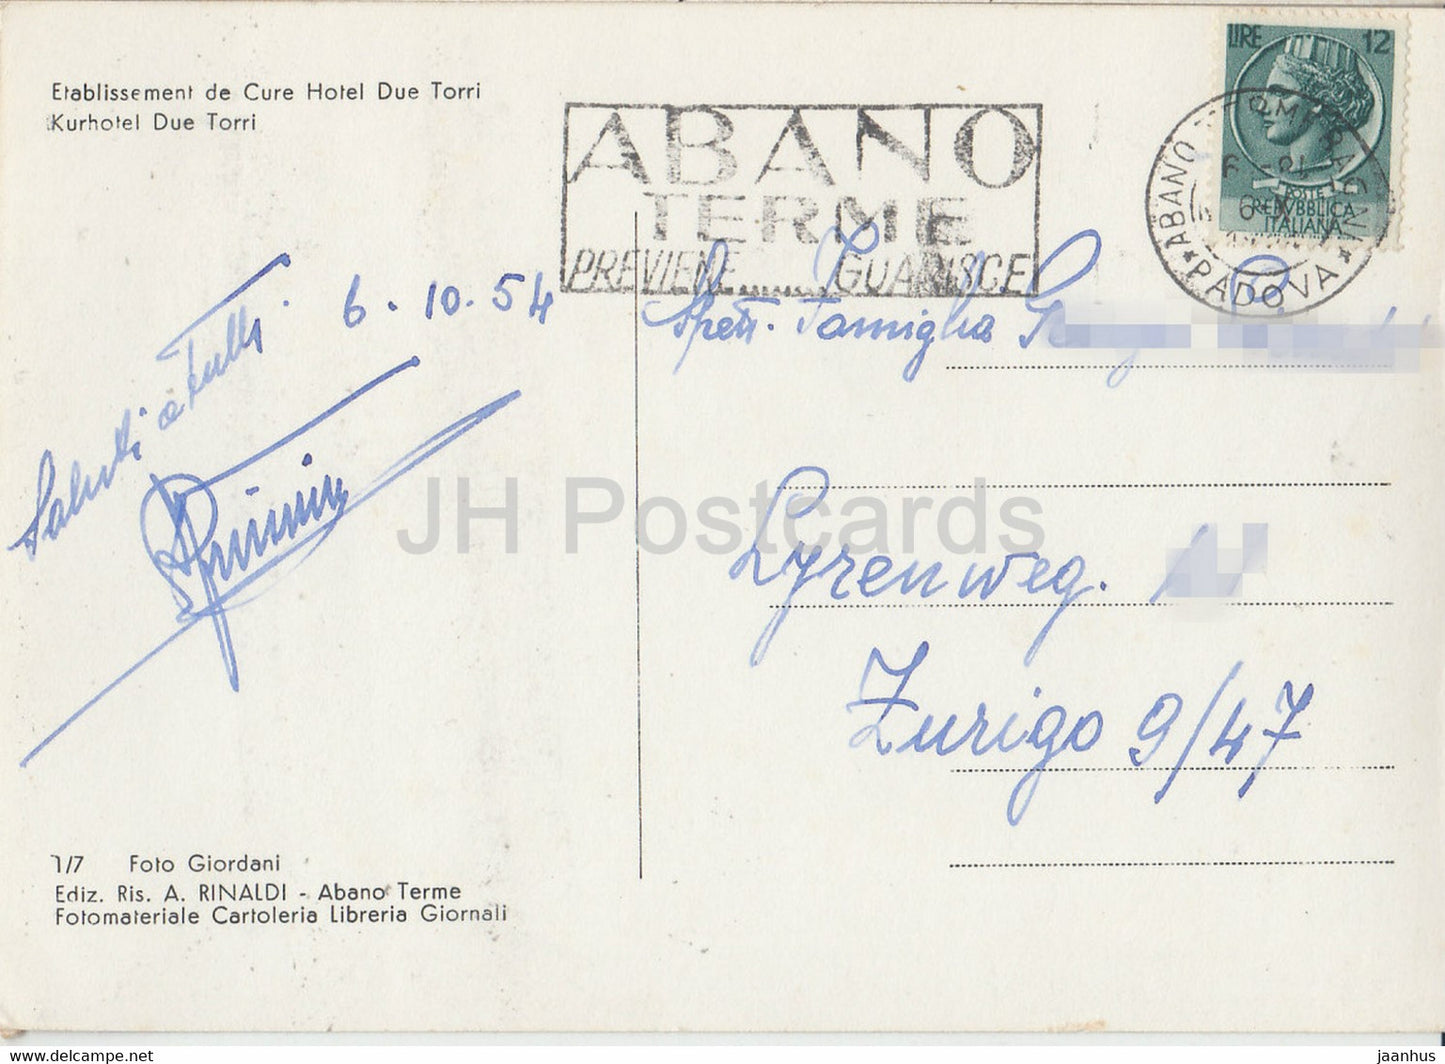 Etablissement de Cure Hotel Due Torri
Kurhotel Due Torri
ABANO
TERME
PREVIENE ...... GUARISCE
LIRE 12
POSTE
REPVBBLICA
ITALIANA
ABANO
PADOVA
6 . 10 . 54
Saluti a Tutti
Spett. Famiglia
Lyrenweg.
Zurigo 9/47
JH Postcards
1/7 Foto Giordani
Ediz. Ris. A. RINALDI - Abano Terme
Fotomateriale Cartoleria Libreria Giornali
hipstamp.com
jaanhus @ delcampe.net